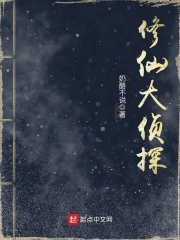 修仙大侦探
奶酪不说◎著
起点中文网